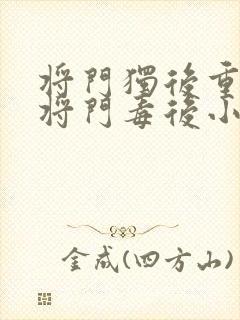 将門獨後重
将門毒後小
金成(四方山)